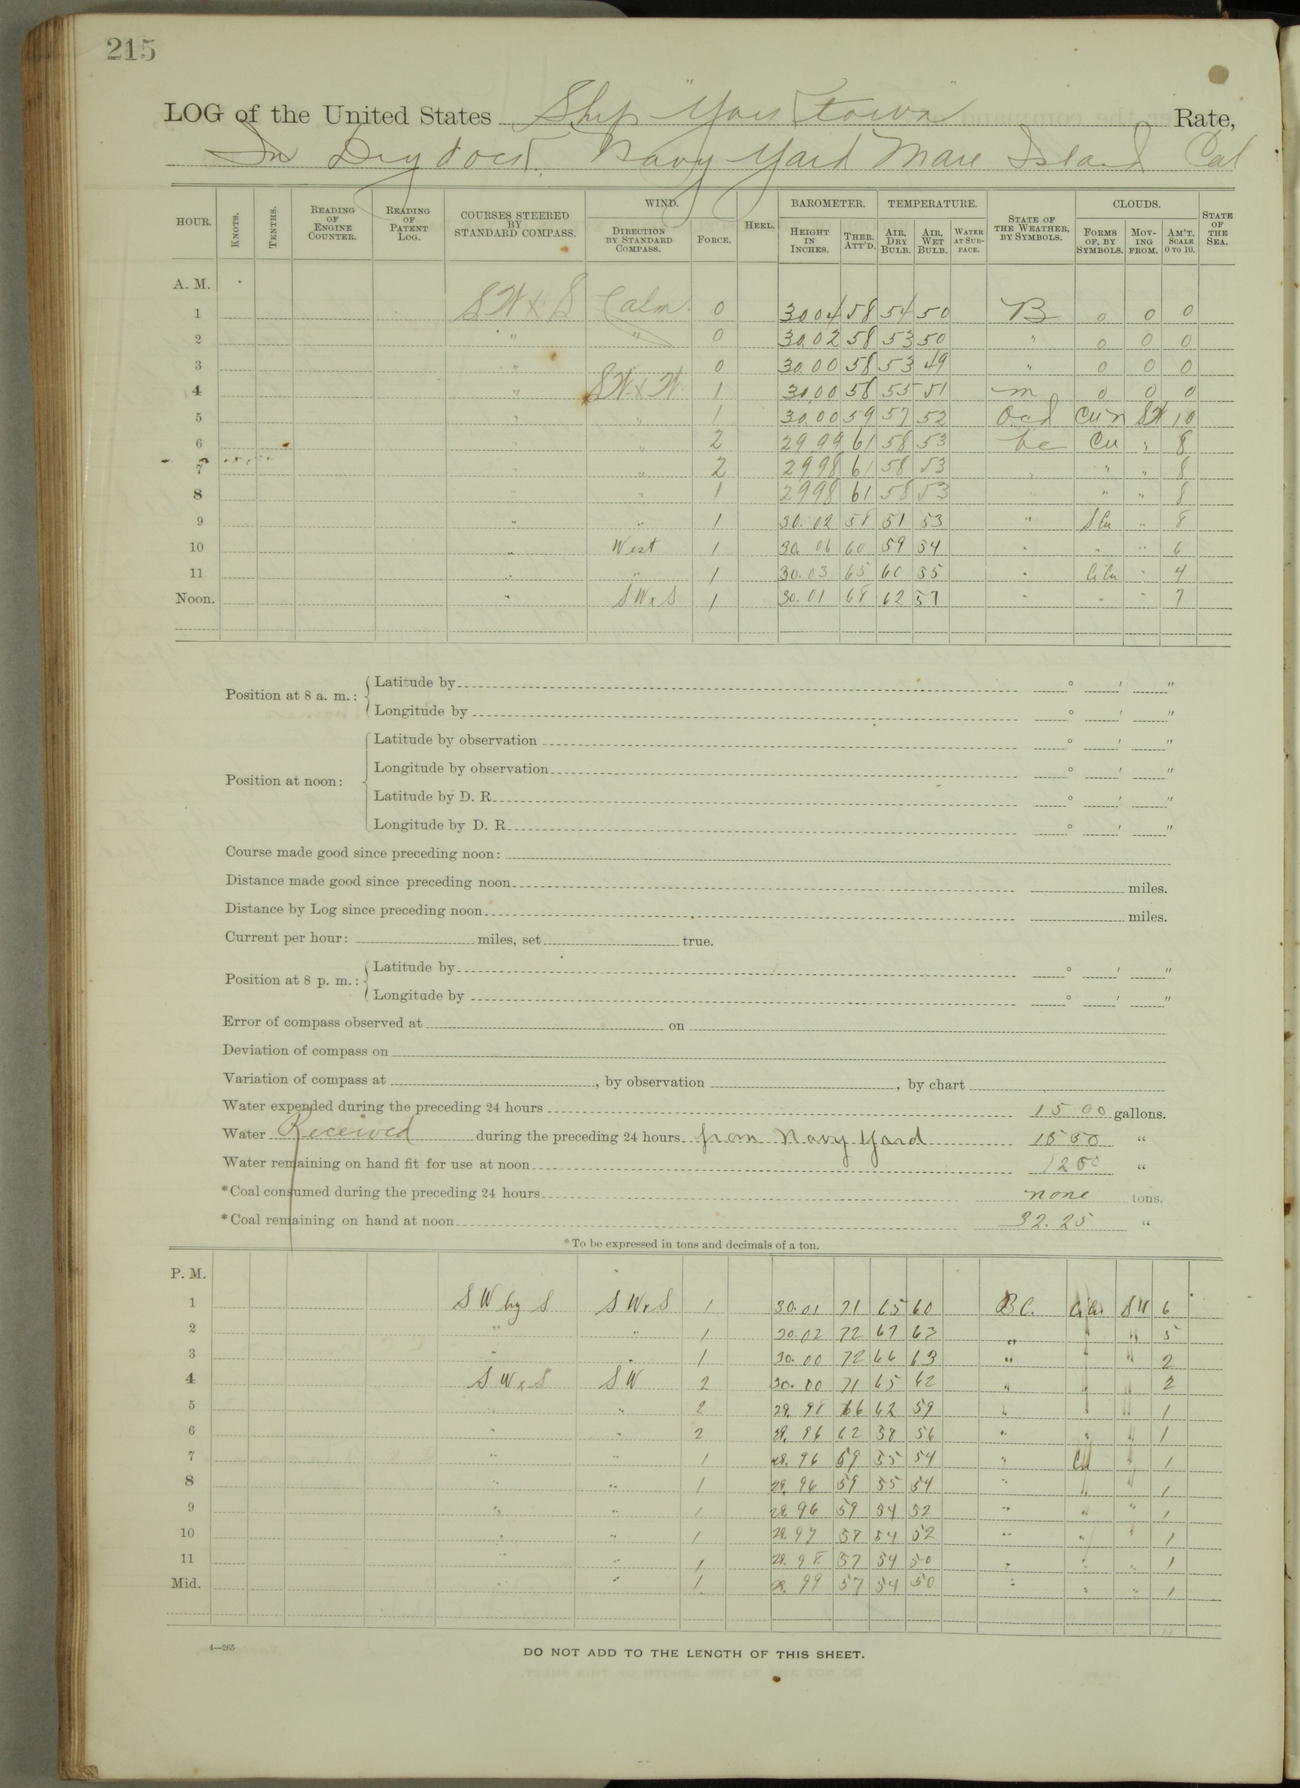 215
LOG of the United States Ship "Yorktown" Rate,
In Dry dock, Navy Yard Mare Island Cal
HOUR. KNOTS. TENTHS. READING OF ENGINE COUNTER. READING OF PATENT LOG. COURSES STEERED BY STANDARD COMPASS. WIND. DIRECTION BY STANDARD COMPASS. FORCE. HEEL. BAROMETER. HEIGHT IN INCHES. THER. ATT'D. TEMPERATURE. AIR, DRY BULB. AIR, WET BULB. WATER AT SURFACE. STATE OF THE WEATHER, BY SYMBOLS. CLOUDS. FORMS OF, BY SYMBOLS. MOVING FROM. AM'T. SCALE 0 TO 10. STATE OF THE SEA.
A. M.
1 SW x S Calm 0 30 04 58 54 50 B 0 0 0
2 " " 0 30 02 58 53 50 " 0 0 0
3 " 0 30.00 58 53 49 " 0 0 0
4 " SW x W 1 30 00 58 55 51 m 0 0 0
5 " " 1 30.00 59 57 52 Ocd Cu n SW 10
6 " 2 29 99 61 58 53 bc Cu " 8
7 " " 2 29 98 61 58 53 " " " 8
8 " " 1 29 98 61 58 53 " " " 8
9 " " 1 30.02 58 51 53 " S Cu " 8
10 " West 1 30.06 60 59 54 " " " 6
11 " " 1 30.03 65 60 55 " Ci Cu " 4
Noon. " SW x S 1 30.01 68 62 57 " " " 7
Position at 8 a. m.: Latitude by ° ' "
Longitude by ° ' "
Position at noon: Latitude by observation ° ' "
Longitude by observation ° ' "
Latitude by D. R. ° ' "
Longitude by D. R. ° ' "
Course made good since preceding noon:
Distance made good since preceding noon miles.
Distance by Log since preceding noon miles.
Current per hour: miles, set true.
Position at 8 p. m.: Latitude by ° ' "
Longitude by ° ' "
Error of compass observed at on
Deviation of compass on
Variation of compass at , by observation , by chart
Water expended during the preceding 24 hours 1500 gallons.
Water Received during the preceding 24 hours from Navy Yard 1550 "
Water remaining on hand fit for use at noon 1200 "
*Coal consumed during the preceding 24 hours none tons.
*Coal remaining on hand at noon 32.25 "
*To be expressed in tons and decimals of a ton.
P. M.
1 SW by S SW x S 1 30.01 71 65 60 B C. Ci Cu. SW 6
2 " " 1 30.02 72 67 63 " " " 5
3 " " 1 30.00 72 66 63 " " " 2
4 SW x S SW 2 30.00 71 65 62 " " " 2
5 " " 2 29.98 66 62 59 " " " 1
6 " " 2 29.96 62 58 56 " " " 1
7 " " 1 29.96 59 55 54 " Cu " 1
8 " " 1 29.96 59 55 54 " " " 1
9 " " 1 29.96 59 54 52 " " " 1
10 " " 1 29.97 58 54 52 " " " 1
11 " " 1 29.98 57 54 50 " " " 1
Mid. " " 1 29.99 57 54 50 " " " 1
4—265
DO NOT ADD TO THE LENGTH OF THIS SHEET.